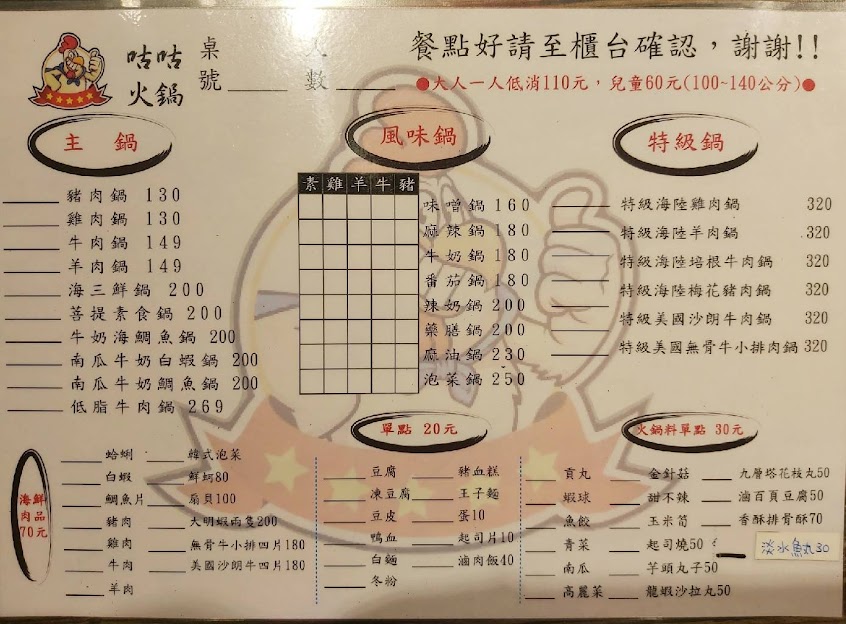 咕咕
火鍋
桌號
人數
餐點好請至櫃台確認，謝謝!!
●大人一人低消110元，兒童60元(100~140公分)●
主 鍋
豬肉鍋 130
雞肉鍋 130
牛肉鍋 149
羊肉鍋 149
海三鮮鍋 200
菩提素食鍋 200
牛奶海鯛魚鍋 200
南瓜牛奶白蝦鍋 200
南瓜牛奶鯛魚鍋 200
低脂牛肉鍋 269
風味鍋
素 雞 羊 牛 豬
味噌鍋 160
麻辣鍋 180
牛奶鍋 180
番茄鍋 180
辣奶鍋 200
藥膳鍋 200
麻油鍋 230
泡菜鍋 250
特級鍋
特級海陸雞肉鍋 320
特級海陸羊肉鍋 320
特級海陸培根牛肉鍋 320
特級海陸梅花豬肉鍋 320
特級美國沙朗牛肉鍋 320
特級美國無骨牛小排肉鍋 320
海鮮
肉品
70元
蛤蜊
白蝦
鯛魚片
豬肉
雞肉
牛肉
羊肉
韓式泡菜
鮮蚵80
扇貝100
大明蝦兩隻200
無骨牛小排四片180
美國沙朗牛四片180
單點 20元
豆腐
凍豆腐
豆皮
鴨血
白麵
冬粉
豬血糕
王子麵
蛋10
起司片10
滷肉飯40
火鍋料單點 30元
貢丸
蝦球
魚餃
青菜
南瓜
高麗菜
金針菇
甜不辣
玉米筍
起司燒50
芋頭丸子50
龍蝦沙拉丸50
九層塔花枝丸50
滷百頁豆腐50
香酥排骨酥70
淡水魚丸30